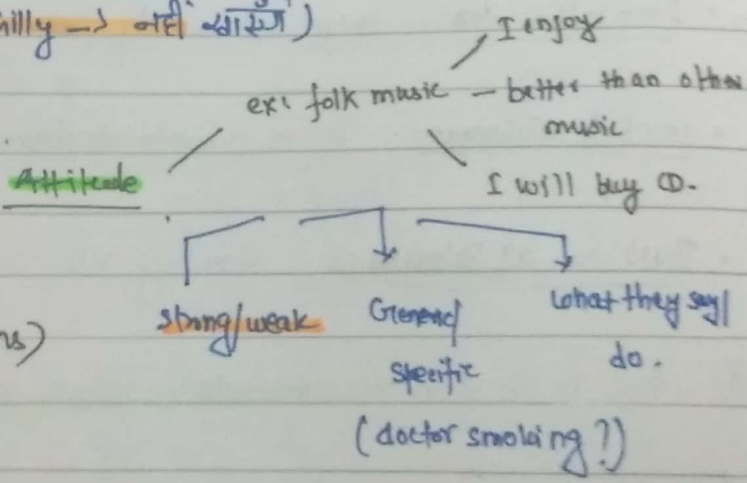 illy → नहीं खाऊँगा)
I enjoy
ex: folk music – better than other
music
Attitude
I will buy CD.
strong/weak
General/
specific
what they say/
do.
ns)
(doctor smoking?)